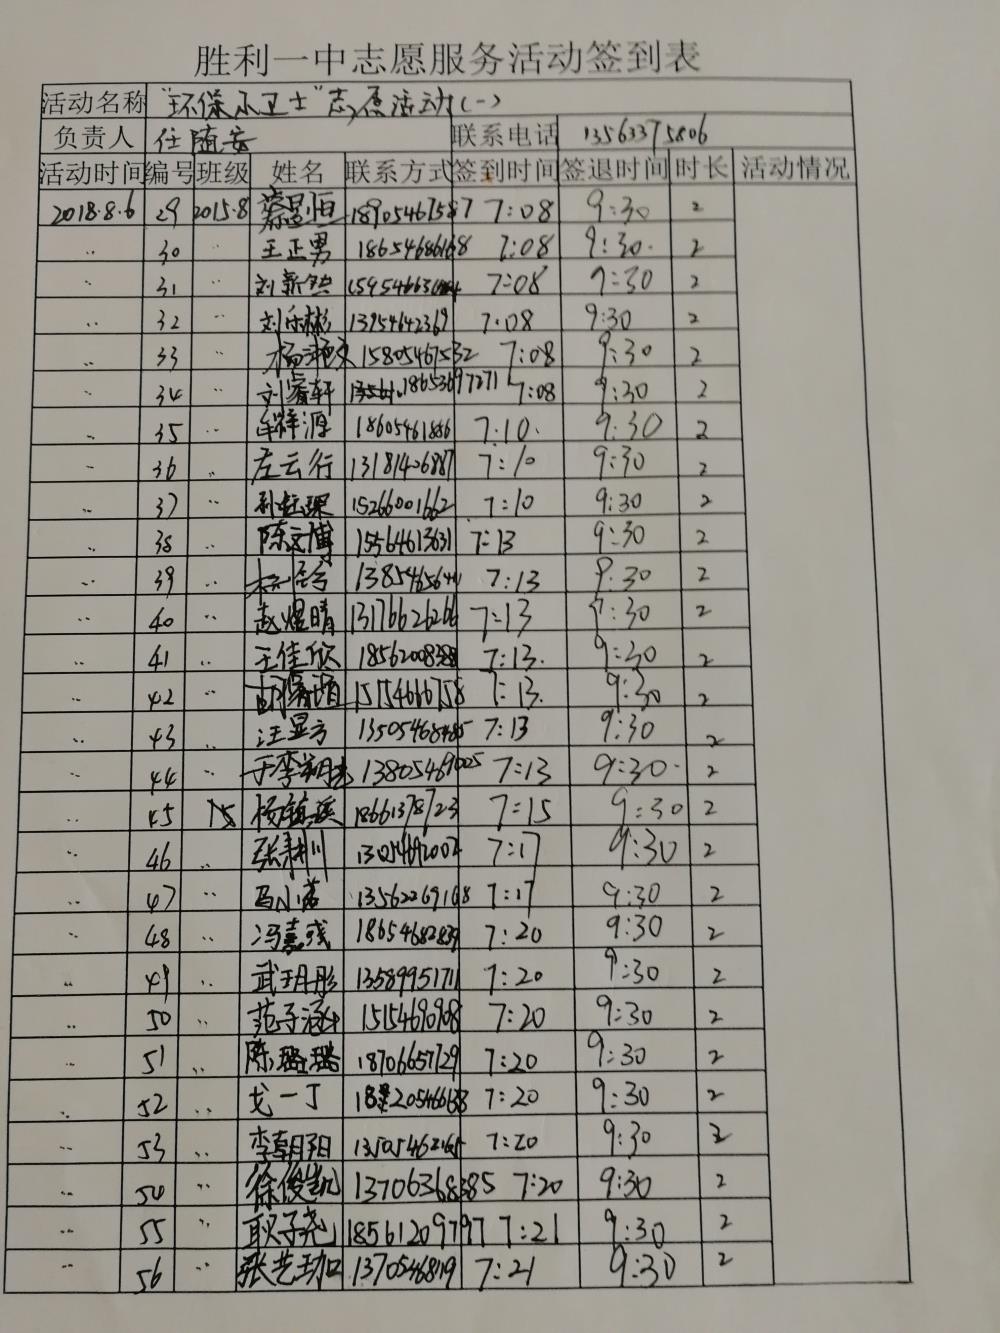 胜利一中志愿服务活动签到表
活动名称 "环保小卫士"志愿活动(一)
负责人 任随安 联系电话 13563375806
活动时间 编号 班级 姓名 联系方式 签到时间 签退时间 时长 活动情况
2018.8.6 29 2015.8 18905467587 7:08 9:30 2
.. 30 .. 王正男 18654686168 7:08 9:30. 2
.. 31 .. 刘新 7:08 9:30 2
.. 32 .. 刘乐彬 13954642369 7.08 9:30 2
.. 33 .. 15805467532 7:08 9:30 2
.. 34 .. 刘睿轩 18653697271 7:08 9:30 2
.. 35 .. 牟祥源 18605461886 7:10. 9:30 2
.. 36 .. 左云行 13181406887 7:10 9:30 2
.. 37 .. 15266001662 7:10 9:30 2
.. 38 .. 陈文博 15564613631 7:13 9:30 2
.. 39 .. 7:13 9.30 2
.. 40 .. 赵煜晴 13176626266 7:13 9:30 2
.. 41 .. 王佳欣 7:13. 9:30 2
.. 42 .. 15154666758 7:13. 9:30 2
.. 43 .. 汪显方 13505468485 7:13 9:30 2
.. 44 .. 13805469025 7:13 9:30. 2
.. 45 15 杨镇溪 18661378723 7:15 9:30 2
.. 46 .. 13054692002 7:17 9:30 2
.. 47 .. 马小茗 13562269168 7:17 9:30 2
.. 48 .. 冯嘉彧 18654682839 7:20 9:30 2
.. 49 .. 武玥彤 13589951711 7:20 9:30 2
.. 50 .. 范子涵 15154690908 7:20 9:30 2
.. 51 .. 陈璐瑶 18706657729 7:20 9:30 2
.. 52 .. 戈一丁 7:20 9:30 2
.. 53 .. 李朝阳 13505462165 7:20 9:30 2
.. 54 .. 徐俊凯 13706368385 7:20 9:30 2
.. 55 .. 耿子尧 18561209797 7:21 9:30 2
.. 56 .. 张艺劼 13705468119 7:21 9:30 2